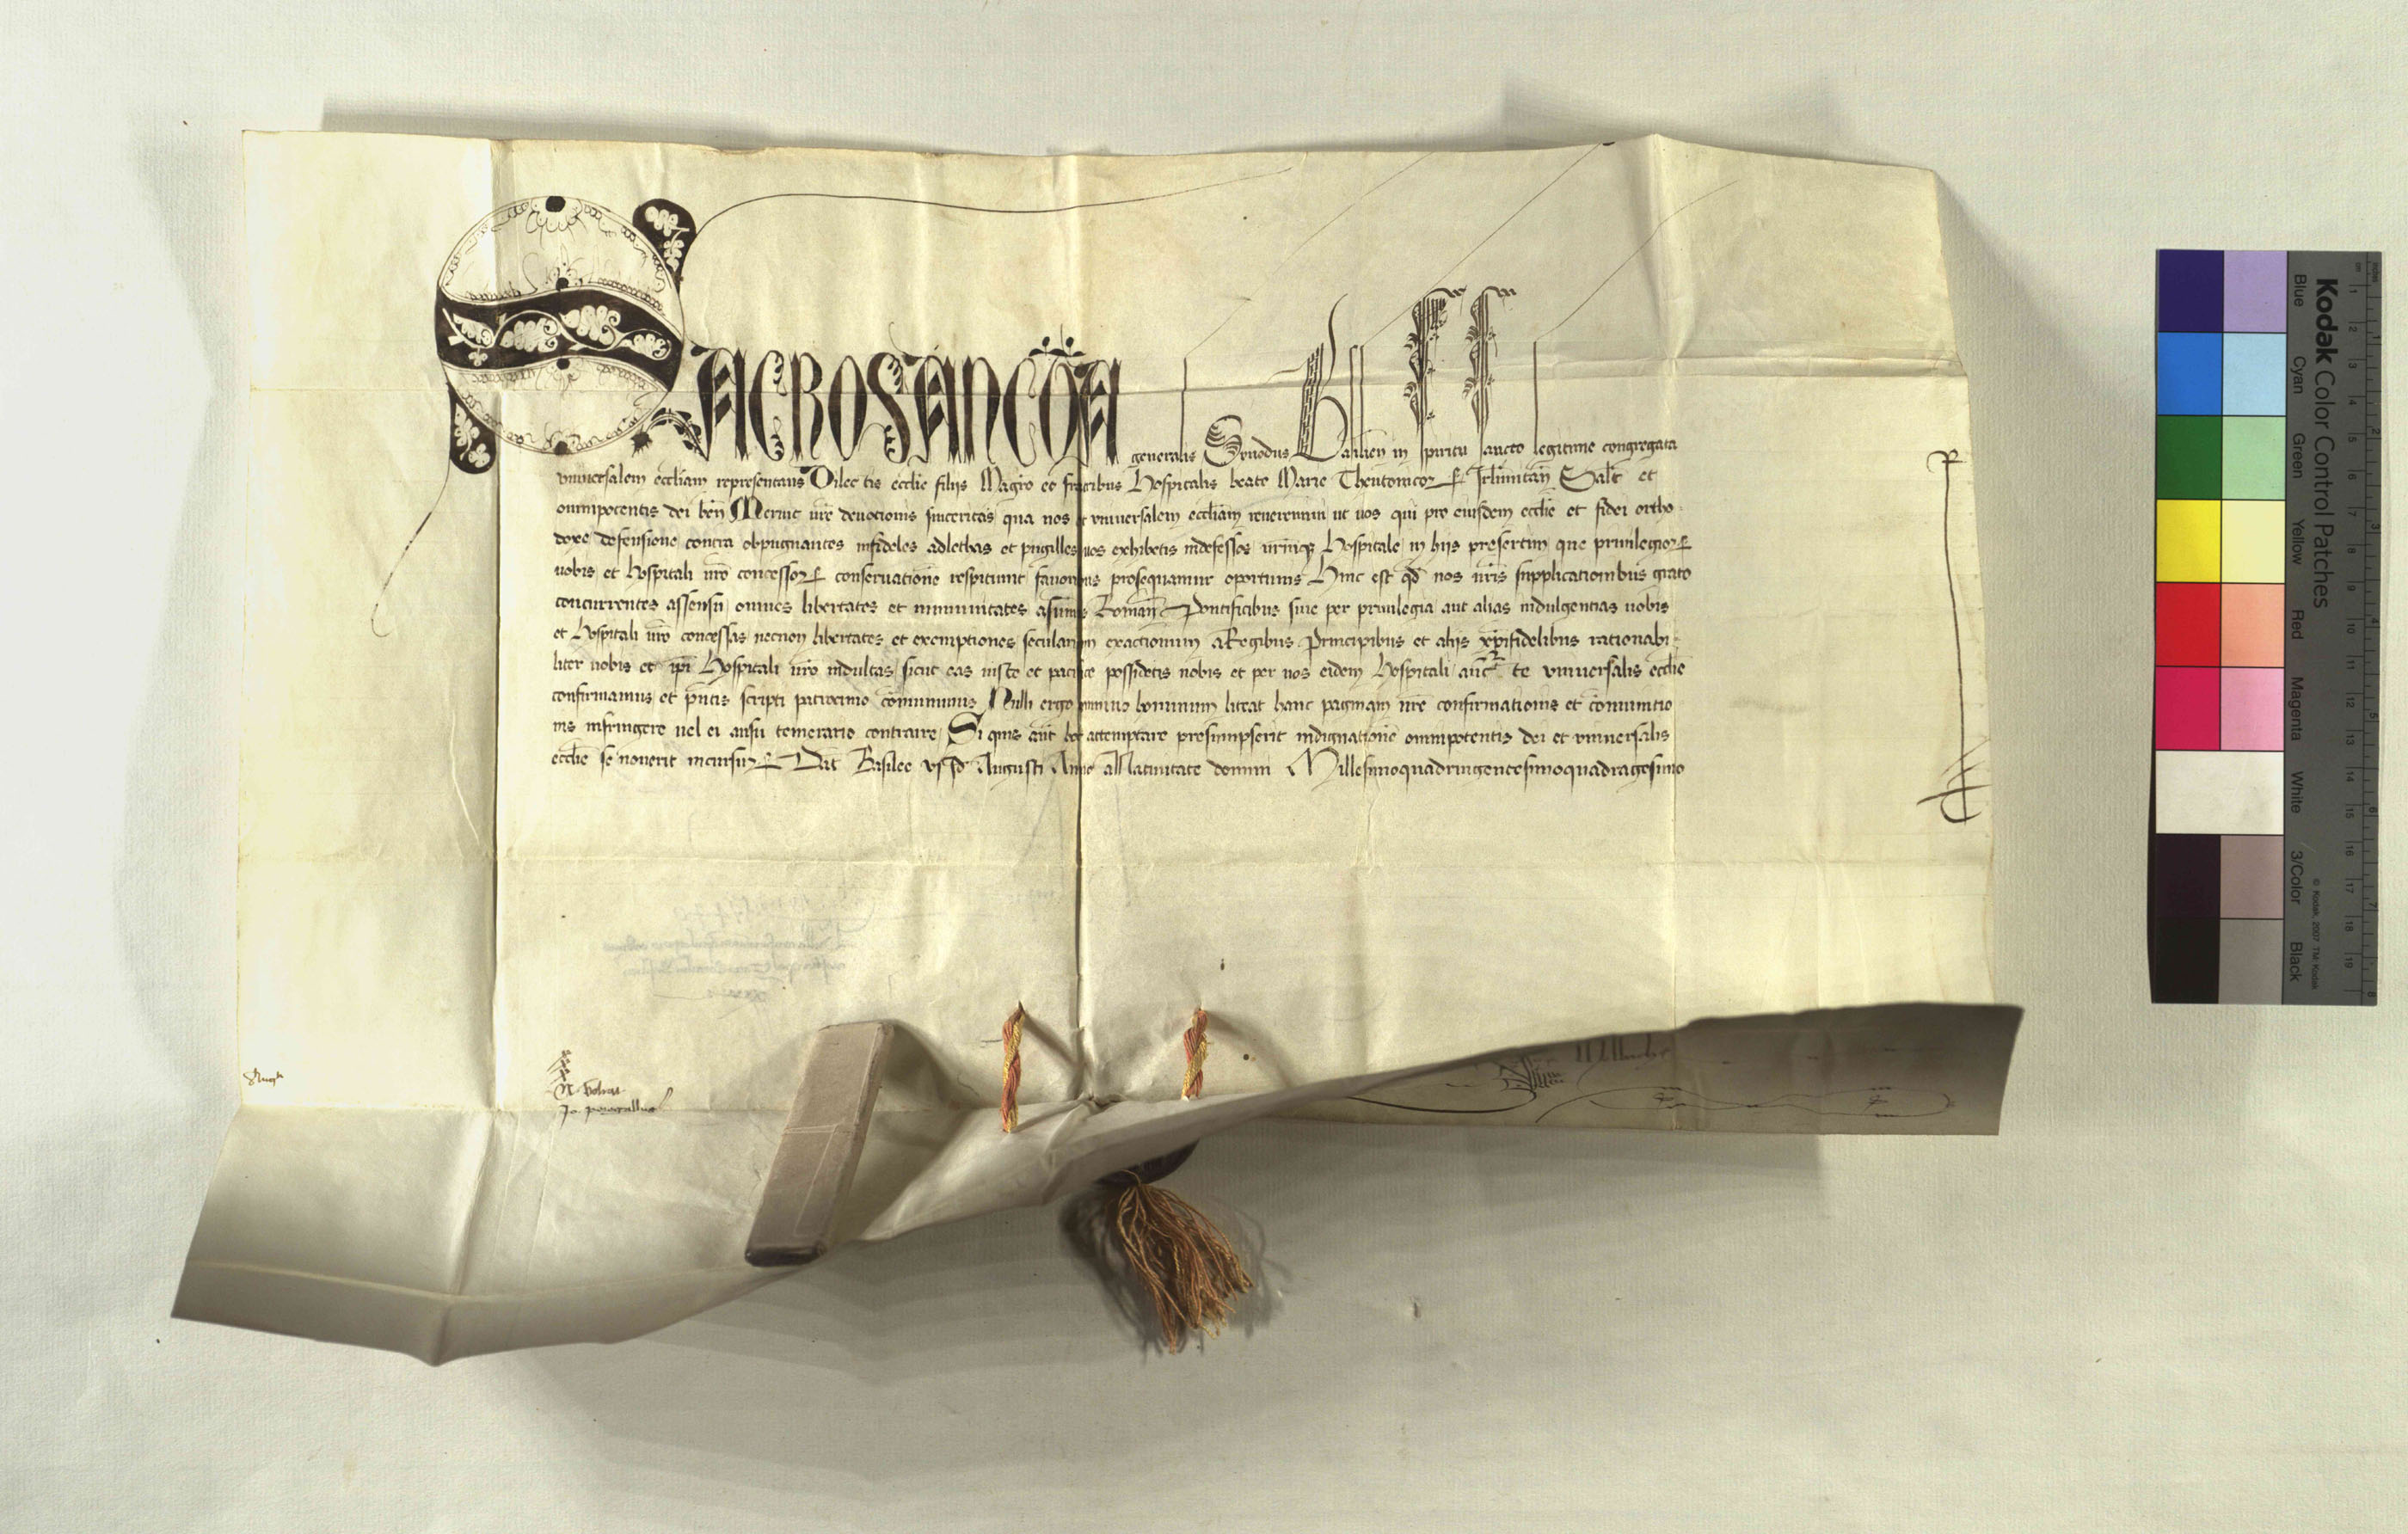 SACROSANCTA generalis Synodus Basilien in spiritu sancto legitime congregata
vniuersalem eccliam representans Dilectis ecclie filijs Magro et fratribus Hospitalis beate Marie Theutonicor Irlimitan Salt et
omnipotentis dei ben Meruit vre deuotionis sinceritas qua nos et vniuersalem eccliam reueremini ut vos qui pro eiusdem ecclie et fidei ortho-
doxe defensione contra obpugnantes infideles adlethas et pugilles vos exhibetis indefessos vrumqz Hospitale in hijs presertim que priuilegior
uobis et Hospitali vro concessor conseruatione respitiunt fauoribus prosequamur oportunis Hinc est qd nos vris supplicationibus grato
concurrentes assensu omnes libertates et immunitates a summis Roman Pontificibus siue per priuilegia aut alias indulgentias uobis
et Hospitali vro concessas necnon libertates et exemptiones secularium exactionum a Regibus Principibus et alijs xpifidelibus rationabi-
liter uobis et ipi Hospitali vro indultas sicut eas iuste et pacifice possidetis uobis et per uos eidem Hospitali auctte vniuersalis ecclie
confirmamus et pntis scripti patrocinio communimus Nulli ergo omnino hominum liceat hanc paginam nre confirmationis et communitio
nis infringere uel ei ausu temerario contraire Si quis aut hoc attemptare presumpserit indignatione omnipotentis dei et vniuersalis
ecclie se nouerit incursur Dat Basilee Augusti Anno a Natiuitate domini Millesimoquadringentesimoquadragesimo
x
x
x
Kodak Color Control Patches
Blue Cyan Green Yellow Red Magenta White 3/Color Black
© Kodak, 2007 TM: Kodak
cm 1 2 3 4 5 6 7 8 9 10 11 12 13 14 15 16 17 18 19
inches 1 2 3 4 5 6 7 8